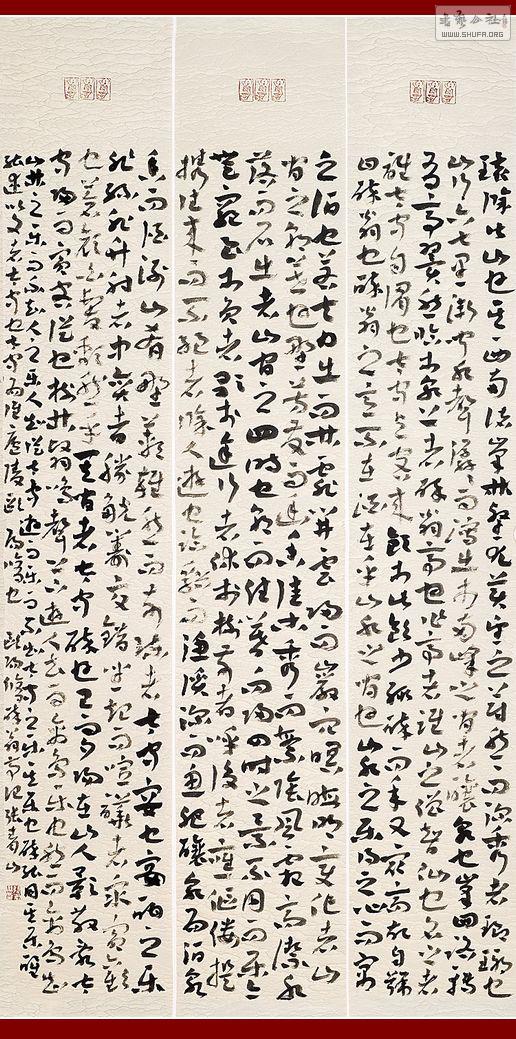 環滁皆山也其西南諸峯林壑尤美望之蔚然而深秀者瑯琊也
山行六七里漸聞水聲潺潺而瀉出於兩峰之間者釀泉也峯回路轉
有亭翼然臨於泉上者醉翁亭也作亭者誰山之僧智仙也名之者
誰太守自謂也太守與客來飲於此飲少輒醉而年又最高故自號
曰醉翁也醉翁之意不在酒在乎山水之間也山水之樂得之心而寓
之酒也若夫日出而林霏開雲歸而巖穴暝晦明變化者山
間之朝暮也野芳發而幽香佳木秀而繁陰風霜高潔水
落而石出者山間之四時也朝而往暮而歸四時之景不同而樂亦
無窮也至於負者歌於途行者休於樹前者呼後者應傴僂提
攜往來而不絕者滁人遊也臨谿而漁溪深而魚肥釀泉為酒泉
香而酒洌山肴野蔌雜然而前陳者太守宴也宴酣之樂
非絲非竹射者中弈者勝觥籌交錯坐起而喧嘩者眾賓歡
也蒼顏白髮頹然乎其間者太守醉也已而夕陽在山人影散亂太
守歸而賓客從也樹林陰翳鳴聲上下遊人去而禽鳥樂也然而禽鳥知
山林之樂而不知人之樂人知從太守遊而樂而不知太守之樂其樂也醉能同其樂醒
能述以文者太守也太守謂誰廬陵歐陽修也 歐陽修醉翁亭記 張青山
WWW.SHUFA.ORG